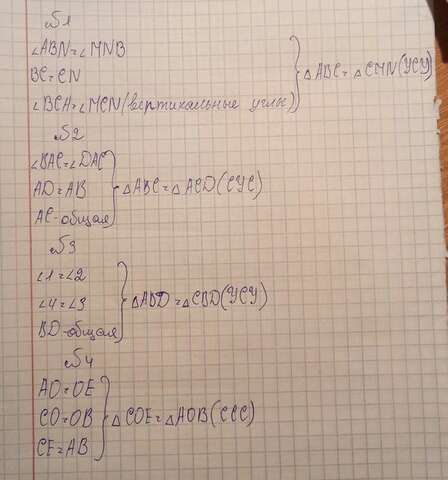 №1
∠ABN=∠MNB
BC=CN
∠BCA=∠MCN(вертикальные углы)
△ABC=△CMN(УСУ)
№2
∠BAC=∠DAC
AD=AB
AC-общая
△ABC=△ACD(СУС)
№3
∠1=∠2
∠4=∠3
BD-общая
△ABD=△CBD(УСУ)
№4
AO=OE
CO=OB
CE=AB
△COE=△AOB(ССС)